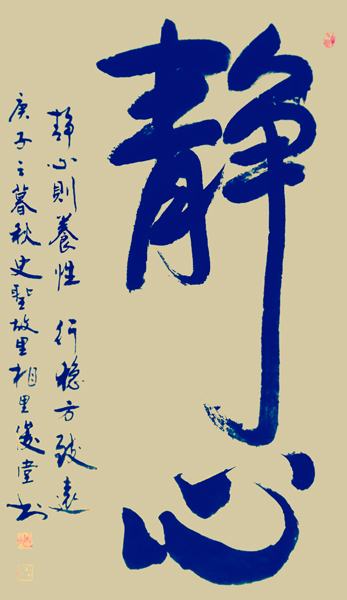 静心
静心則養性 行稳方致遠
庚子之暮秋史聖故里相里堂书